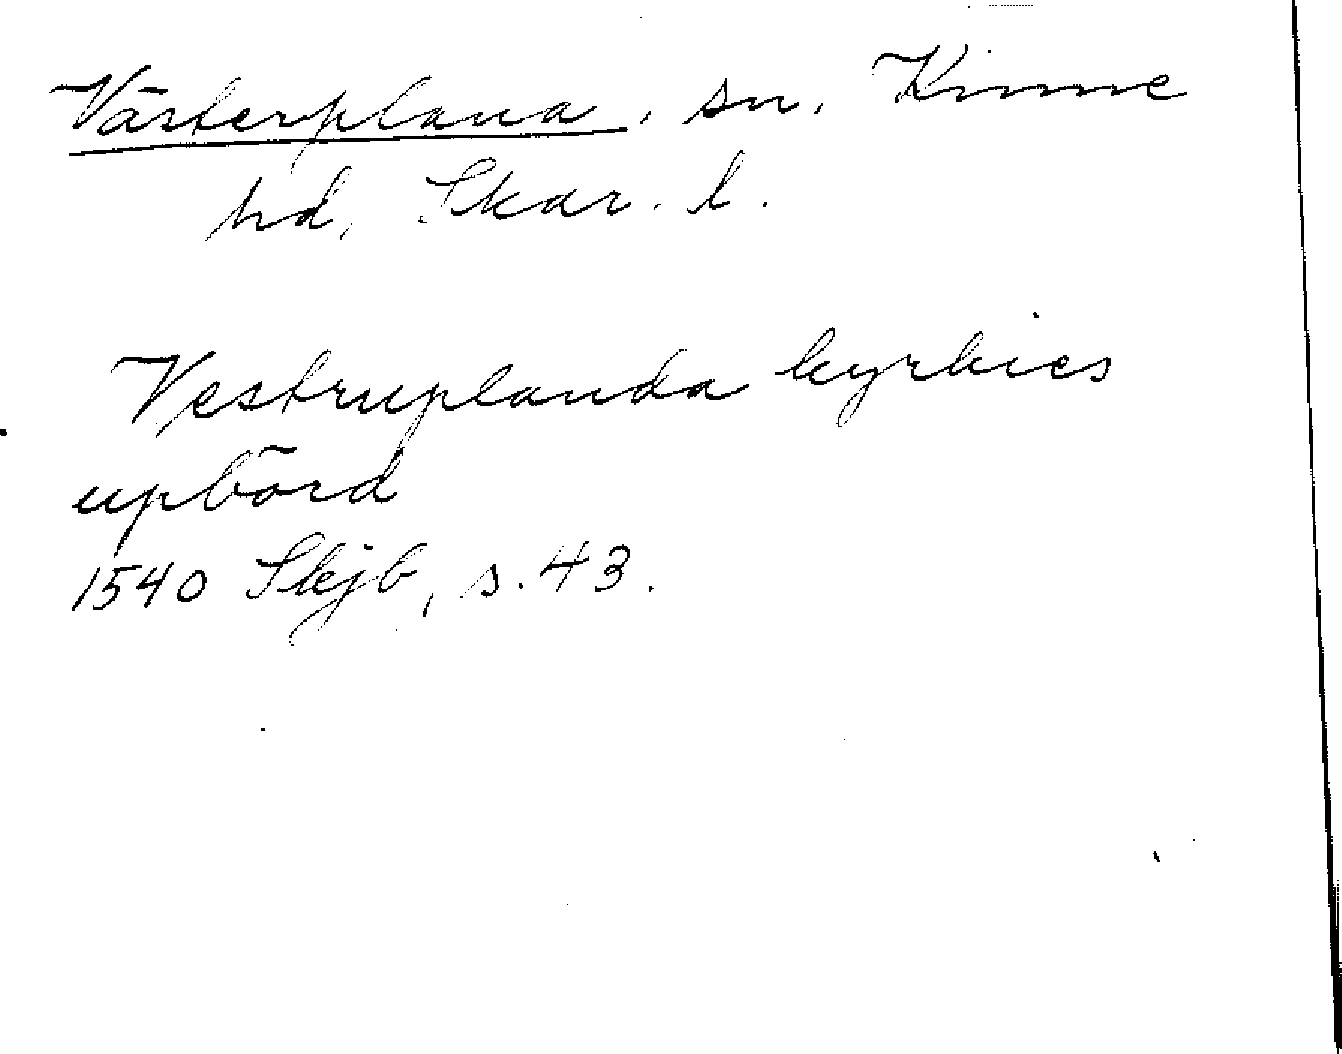 Västerplana, sn. Kinne
hd, Skar. l.
Vestruplanda kyrkies
upbörd
1540 Skjb, s. 43.